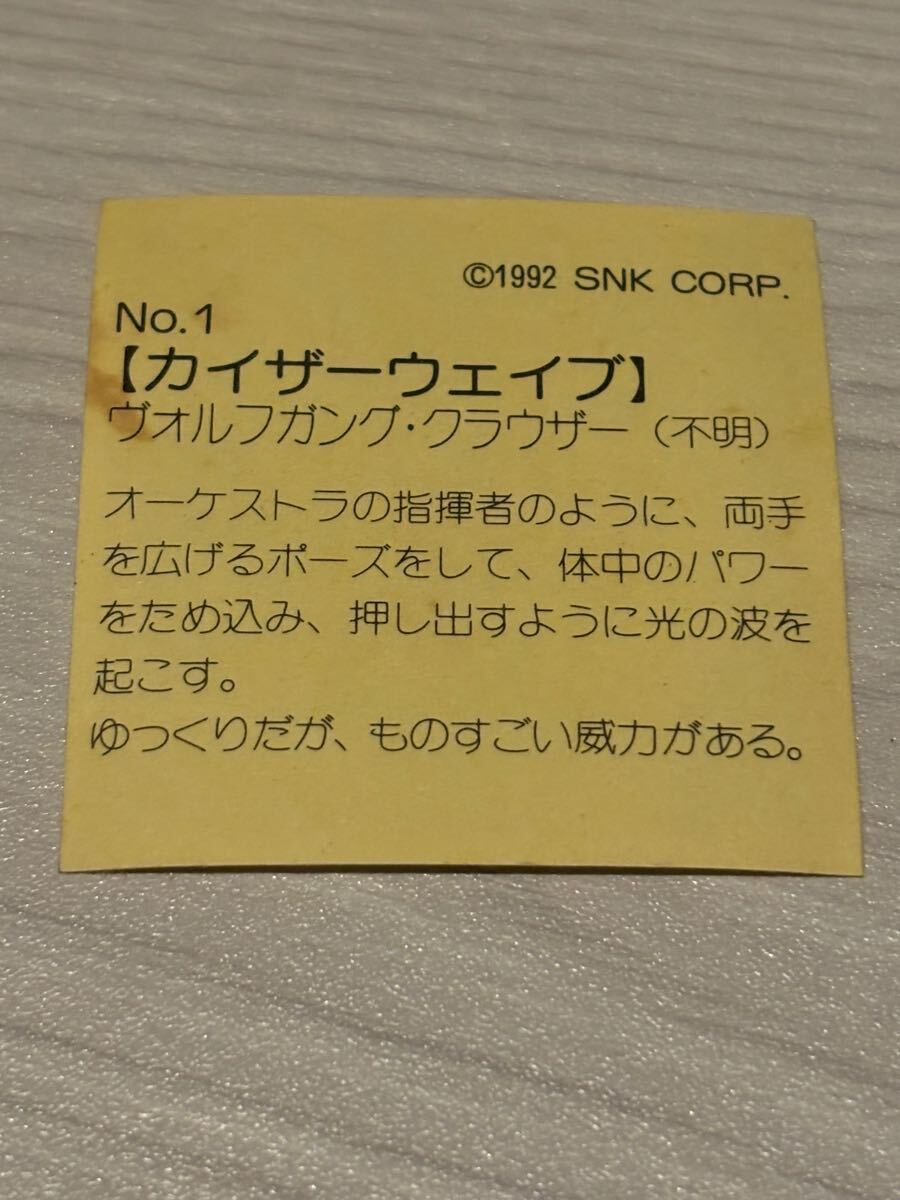 ©1992 SNK CORP.
No.1
【カイザーウェイブ】
ヴォルフガング・クラウザー（不明）
オーケストラの指揮者のように、両手
を広げるポーズをして、体中のパワー
をため込み、押し出すように光の波を
起こす。
ゆっくりだが、ものすごい威力がある。